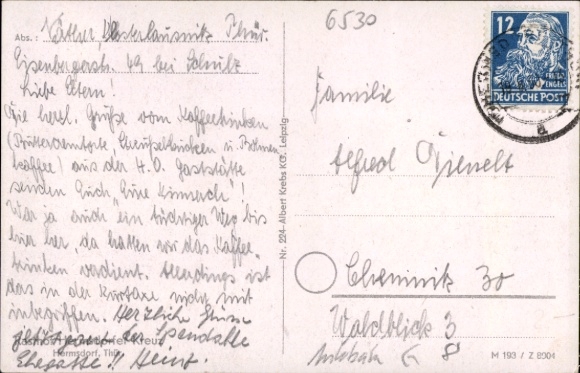 6530
Abs.: Klosterlausnitz Thür.
Eisenbergerstr. 49 bei Schulz
Liebe Eltern!
Die herzl. Grüße vom Kaffeetrinken
(Buttercremtorte, u. Bohnen
kaffee) aus der H.O. Gaststätte
senden Euch Eure Kinner!
War ja auch ein tüchtiger Weg bis
hier her, da hatten wir das Kaffee-
trinken verdient. Allerdings ist
das in der Kurtaxe nicht mit
inbegriffen. Herzliche Grüsse
der
Ehegatte!! Heinz.
Hermsdorfer Kreuz
Hermsdorf, Thür.
Nr. 224 - Albert Krebs KG, Leipzig
12
FRIEDR. ENGELS
DEUTSCHE POST
a
Familie
Alfred
Chemnitz 30
Waldblick 3
8
M 193 / Z 8004